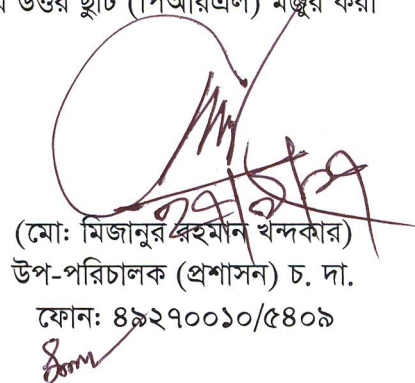 উত্তর ছুটি (পিআরএল) মঞ্জুর করা
(মো: মিজানুর রহমান খন্দকার)
উপ-পরিচালক (প্রশাসন) চ. দা.
ফোন: ৪৯২৭০০১০/৫৪০৯